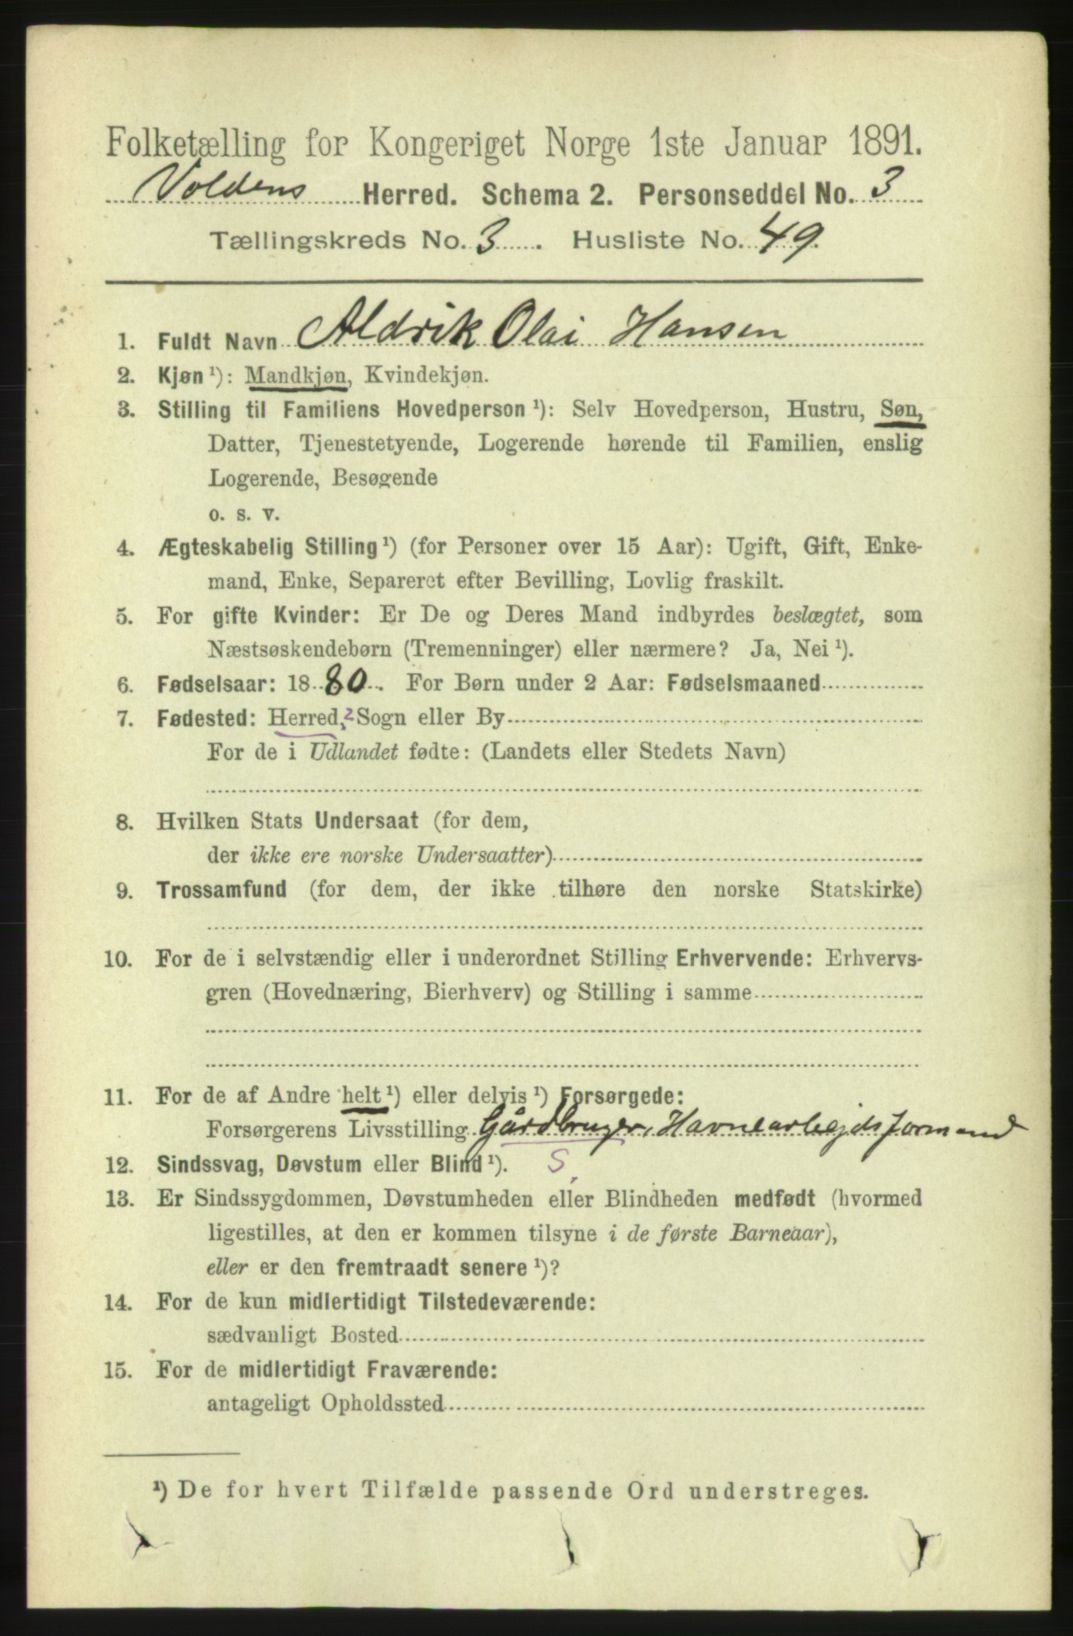 Folketælling for Kongeriget Norge 1ste Januar 1891.
Voldens Herred. Schema 2. Personseddel No. 3
Tællingskreds No. 3. Husliste No. 49.
1. Fuldt Navn Aldrik Olai Hansen
2. Kjøn ¹): Mandkjøn, Kvindekjøn.
3. Stilling til Familiens Hovedperson ¹): Selv Hovedperson, Hustru, Søn,
Datter, Tjenestetyende, Logerende hørende til Familien, enslig
Logerende, Besøgende
o. s. v.
4. Ægteskabelig Stilling ¹) (for Personer over 15 Aar): Ugift, Gift, Enke-
mand, Enke, Separeret efter Bevilling, Lovlig fraskilt.
5. For gifte Kvinder: Er De og Deres Mand indbyrdes beslægtet, som
Næstsøskendebørn (Tremenninger) eller nærmere? Ja, Nei ¹).
6. Fødselsaar: 1880. For Børn under 2 Aar: Fødselsmaaned
7. Fødested: Herred,2 Sogn eller By
For de i Udlandet fødte: (Landets eller Stedets Navn)
8. Hvilken Stats Undersaat (for dem,
der ikke ere norske Undersaatter)
9. Trossamfund (for dem, der ikke tilhøre den norske Statskirke)
10. For de i selvstændig eller i underordnet Stilling Erhvervende: Erhvervs-
gren (Hovednæring, Bierhverv) og Stilling i samme
11. For de af Andre helt ¹) eller delvis ¹) Forsørgede:
Forsørgerens Livsstilling Gårdbruger, Havnearbejdsformand
12. Sindssvag, Døvstum eller Blind ¹). S
13. Er Sindssygdommen, Døvstumheden eller Blindheden medfødt (hvormed
ligestilles, at den er kommen tilsyne i de første Barneaar),
eller er den fremtraadt senere ¹)?
14. For de kun midlertidigt Tilstedeværende:
sædvanligt Bosted
15. For de midlertidigt Fraværende:
antageligt Opholdssted
¹) De for hvert Tilfælde passende Ord understreges.